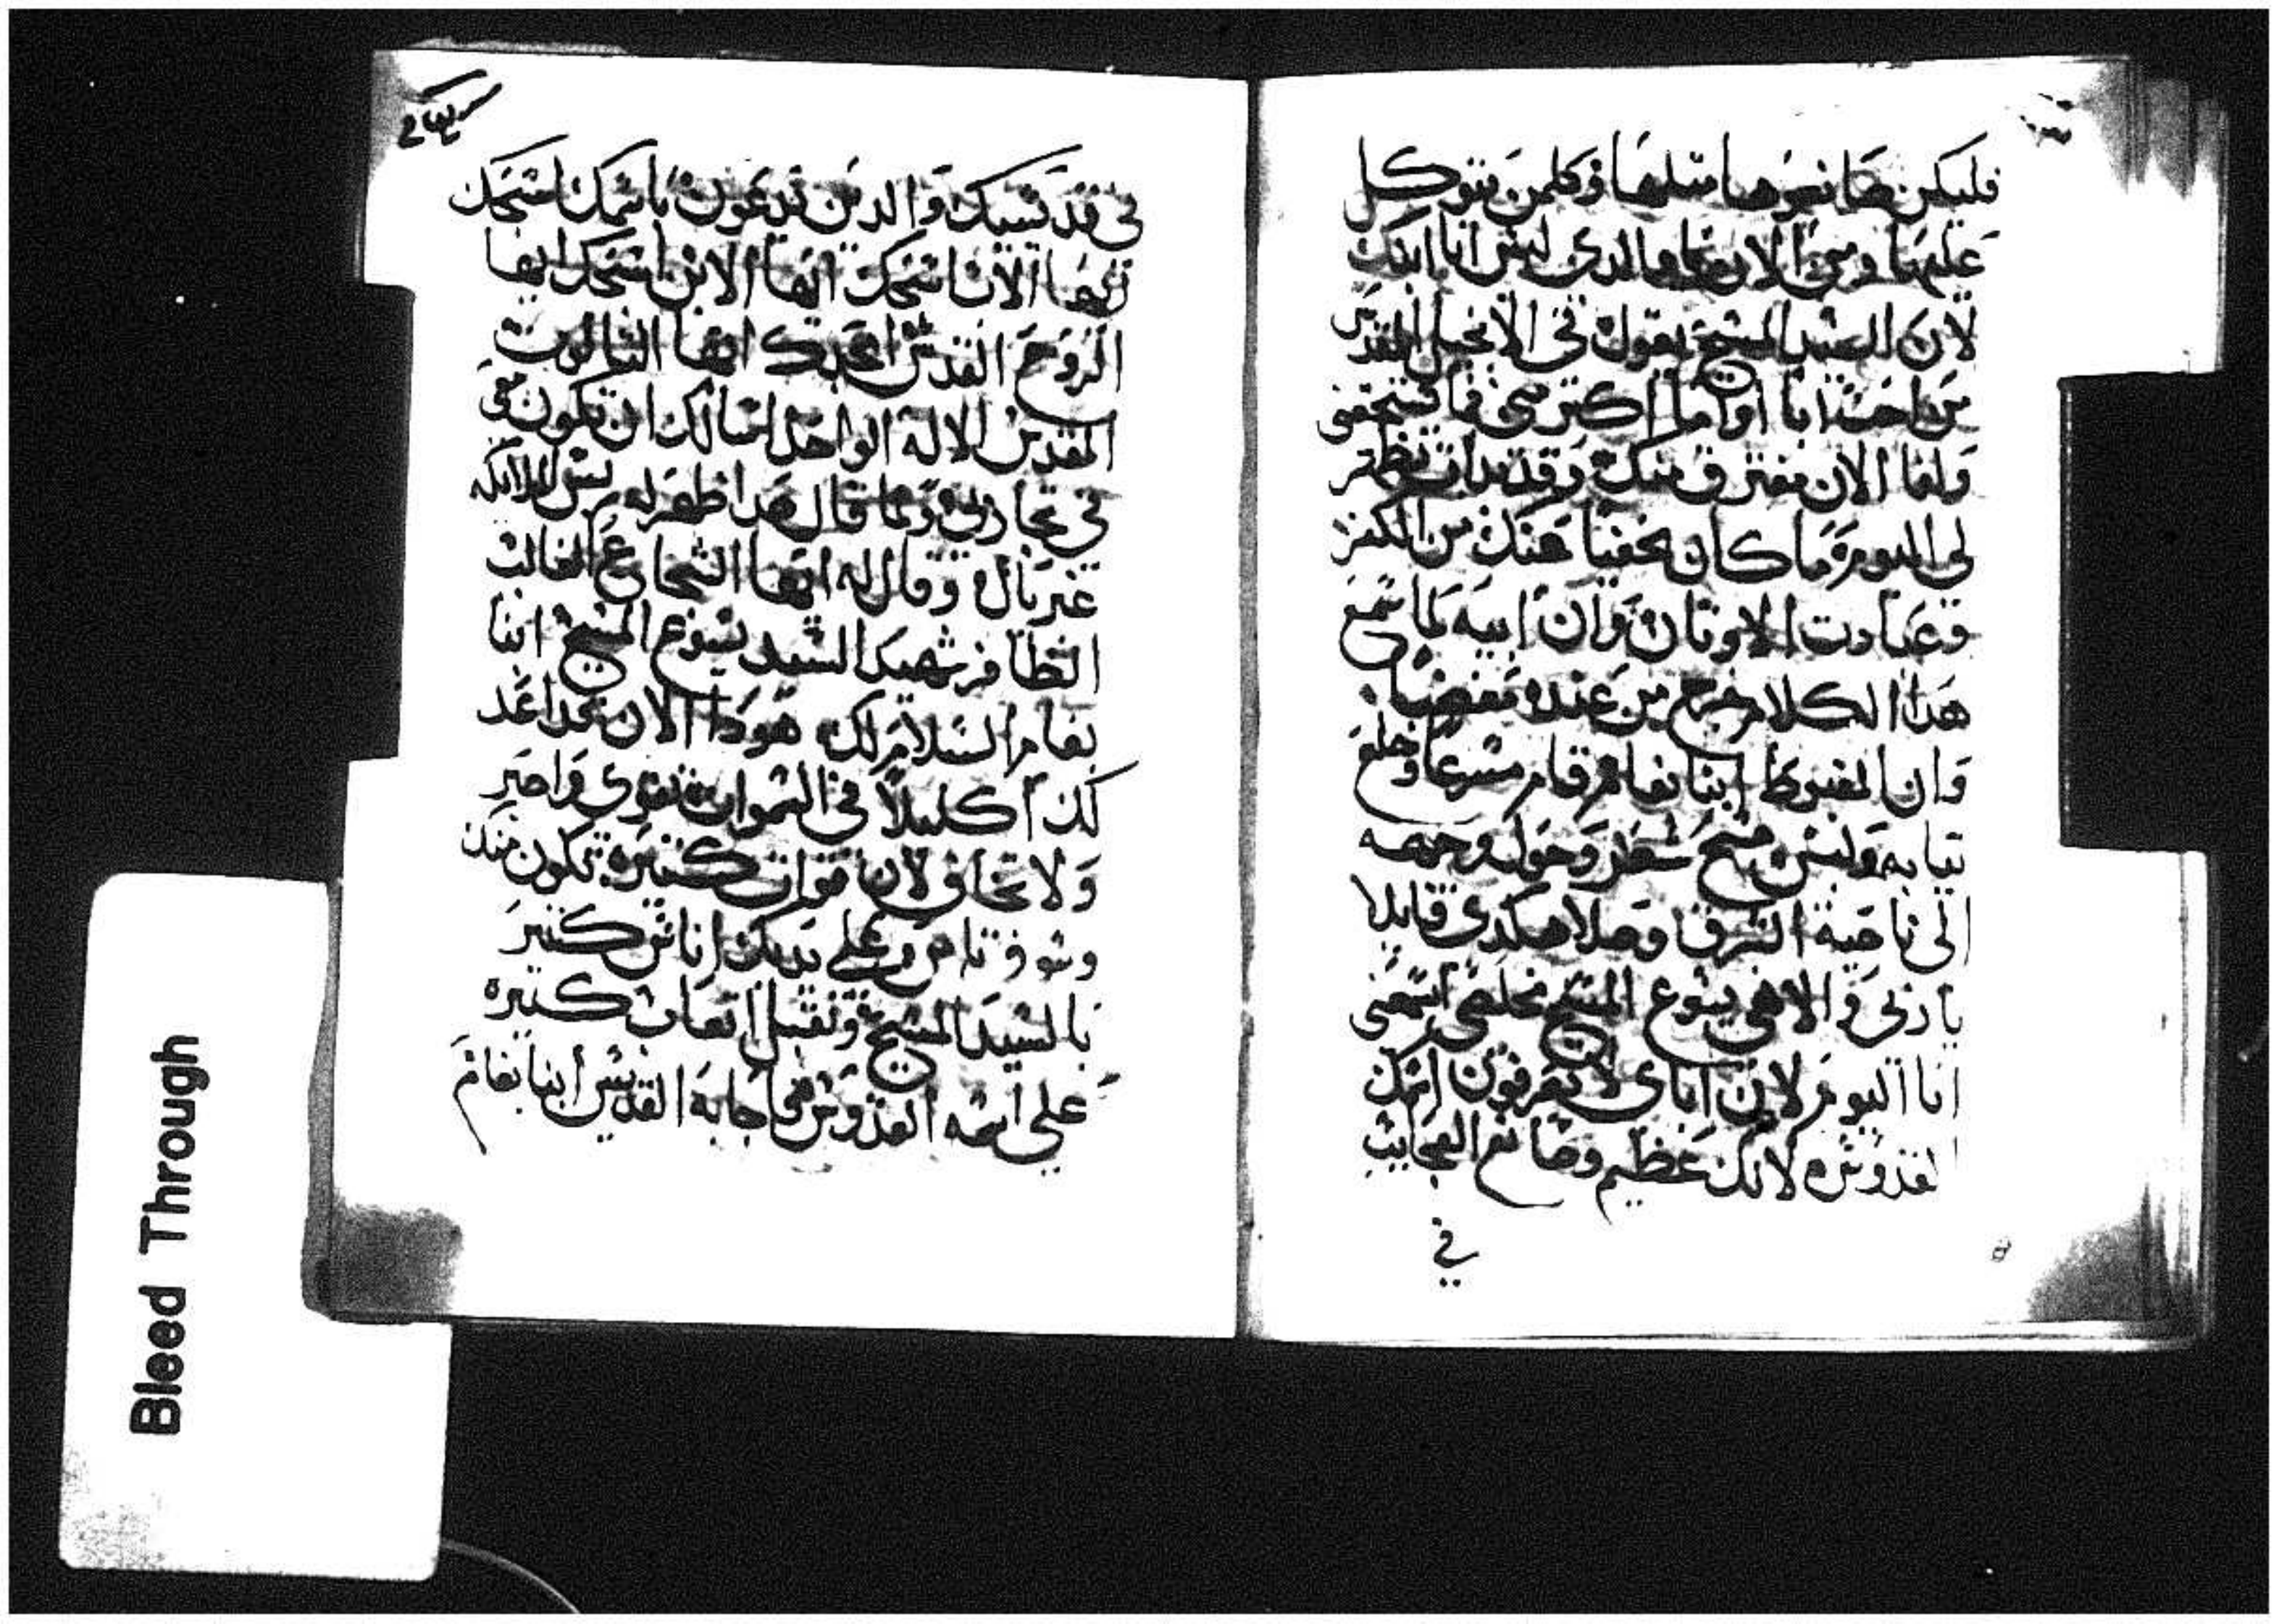 فليكن صانعوها مثلها وكلمن يتوكل
عليها ومن الان يا والدى ليس انا ابنك
لان السيد المسيح يقول في الانجيل المقدس
من احب ابا او اما اكتر مني فما يستحقني
وانا الان مفترق منك وقد بدات تظهر
لي اليوم ما كان مخفيا عندك من الكفر
وعبادت الاوتان وان ابيه لما سمع
هذا الكلام خرج من عنده مغضبا
وان المغبوط ابنا بغام قام مسرعا وخلع
تيابه ولبس مسح شعر وحول وجهه
الى ناحية الشرق وصلا هكدى قايلا
يا ربى والاهى يسوع المسيح مخلصى اسمعنى
انا اليوم لان اباى لا يعرفون اسمك
القدوس لانك عظيم وصانع العجايب
في
في قديسيك والدين يدعون باسمك اسبحك
ايها الاب اسبحك ايها الابن اسبحك ايها
الروح القدس امجدك ايها التالوت
المقدس الاله الواحد اسالك ان تكون معى
في تجاربي ولما قال هدا ظهر له ريس الملايكه
غبريال وقال له ايها الشجاع الغالب
الظافر شهيد السيد يسوع المسيح ابنا
بغام السلام لك هودا الان قد اعد
لك اكليلا في السموات تقوى واصبر
ولا تخاف لان قوات كتيره تكون منك
وسوف تامن على يديك اناس كتير
بالسيد المسيح وتقبل اتعاب كتيره
على اسمه القدوس فاجابه القديس ابنا بغام
Bleed Through